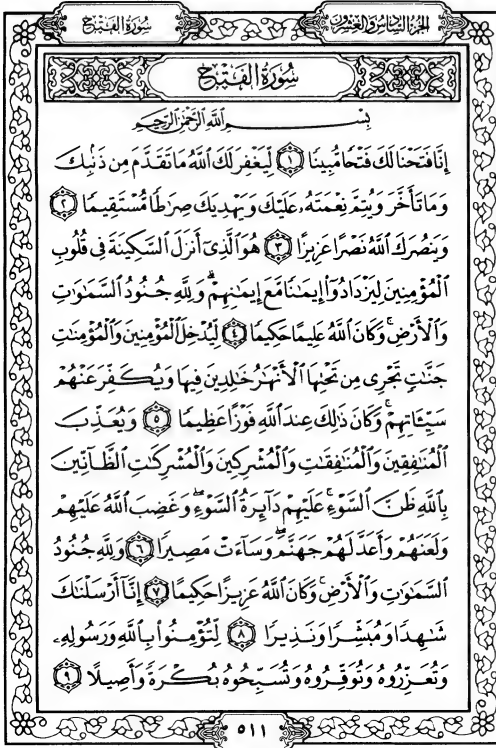 الجزء السادس والعشرون سورة الفتح
سورة الفتح
بسم الله الرحمن الرحيم
إِنَّا فَتَحْنَا لَكَ فَتْحًا مُّبِينًا ١ لِّيَغْفِرَ لَكَ ٱللَّهُ مَا تَقَدَّمَ مِن ذَنۢبِكَ
وَمَا تَأَخَّرَ وَيُتِمَّ نِعْمَتَهُۥ عَلَيْكَ وَيَهْدِيَكَ صِرَٰطًا مُّسْتَقِيمًا ٢
وَيَنصُرَكَ ٱللَّهُ نَصْرًا عَزِيزًا ٣ هُوَ ٱلَّذِىٓ أَنزَلَ ٱلسَّكِينَةَ فِى قُلُوبِ
ٱلْمُؤْمِنِينَ لِيَزْدَادُوٓا۟ إِيمَٰنًا مَّعَ إِيمَٰنِهِمْ ۗ وَلِلَّهِ جُنُودُ ٱلسَّمَٰوَٰتِ
وَٱلْأَرْضِ ۚ وَكَانَ ٱللَّهُ عَلِيمًا حَكِيمًا ٤ لِّيُدْخِلَ ٱلْمُؤْمِنِينَ وَٱلْمُؤْمِنَٰتِ
جَنَّٰتٍ تَجْرِى مِن تَحْتِهَا ٱلْأَنْهَٰرُ خَٰلِدِينَ فِيهَا وَيُكَفِّرَ عَنْهُمْ
سَيِّـَٔاتِهِمْ ۚ وَكَانَ ذَٰلِكَ عِندَ ٱللَّهِ فَوْزًا عَظِيمًا ٥ وَيُعَذِّبَ
ٱلْمُنَٰفِقِينَ وَٱلْمُنَٰفِقَٰتِ وَٱلْمُشْرِكِينَ وَٱلْمُشْرِكَٰتِ ٱلظَّآنِّينَ
بِٱللَّهِ ظَنَّ ٱلسَّوْءِ ۚ عَلَيْهِمْ دَآئِرَةُ ٱلسَّوْءِ ۖ وَغَضِبَ ٱللَّهُ عَلَيْهِمْ
وَلَعَنَهُمْ وَأَعَدَّ لَهُمْ جَهَنَّمَ ۖ وَسَآءَتْ مَصِيرًا ٦ وَلِلَّهِ جُنُودُ
ٱلسَّمَٰوَٰتِ وَٱلْأَرْضِ ۚ وَكَانَ ٱللَّهُ عَزِيزًا حَكِيمًا ٧ إِنَّآ أَرْسَلْنَٰكَ
شَٰهِدًا وَمُبَشِّرًا وَنَذِيرًا ٨ لِّتُؤْمِنُوا۟ بِٱللَّهِ وَرَسُولِهِۦ
وَتُعَزِّرُوهُ وَتُوَقِّرُوهُ وَتُسَبِّحُوهُ بُكْرَةً وَأَصِيلًا ٩
٥١١